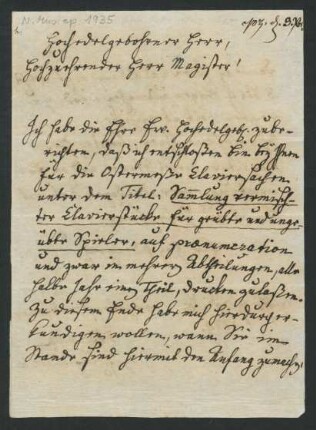 N. Mus. ep. 1935
Hochedelgebohrner Herr,
Hochzuehrender Herr Magister!
Ich habe die Ehre Ew. Hochedelgeb. zube-
richten, daß ich entschloßen bin bey Ihnen
für die Ostermeße Claviersachen
unter dem Titel: Sammlung vermisch-
ter Clavierstücke für geübte und unge-
übte Spieler, auf praenumeration
und zwar in mehrern Abtheilungen, alle
halbe Jahr einen Theil, drucken zulaßen.
Zu diesem Ende habe mich hierdurch er-
kundigen wollen, wann Sie im
Stande sind hiermit den Anfang zumachen